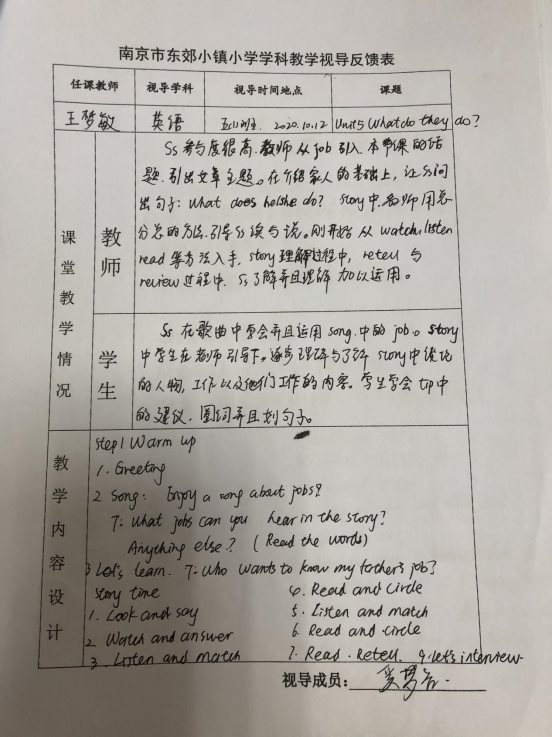 南京市东郊小镇小学学科教学视导反馈表
任课教师 视导学科 视导时间地点 课题
王梦敏 英语 五(1)班 2020.10.12 Unit5 What do they do?
课堂教学情况
教师
Ss参与度很高.教师从job引入本节课的话
题.引出文章主题。在介绍家人的基础上,让Ss问
出句子: What does he/she do? story中,老师用总
分总的方法.引导Ss读与说。刚开始从watch, listen
read等方法入手, story理解过程中, retell与
review过程中. Ss了解并且理解加以运用。
学生
Ss在歌曲中学会并且运用song.中的job。story
中学生在老师引导下,逐步理解与了解story中
的人物,工作以及他们工作的内容。学生学会tip中
的建议.圈词并且划句子。
教学内容设计
Step1 Warm up
1. Greeting
2 Song: Enjoy a song about jobs?
T: What jobs can you hear in the story?
Anything else? (Read the words)
3 Let's learn. T: Who wants to know my father's job?
Story time
1. Look and say
2. Watch and answer
3. Listen and match
4. Read and circle
5. Listen and match
6. Read and circle
7. Read. Retell. 9. Let's interview.
视导成员: